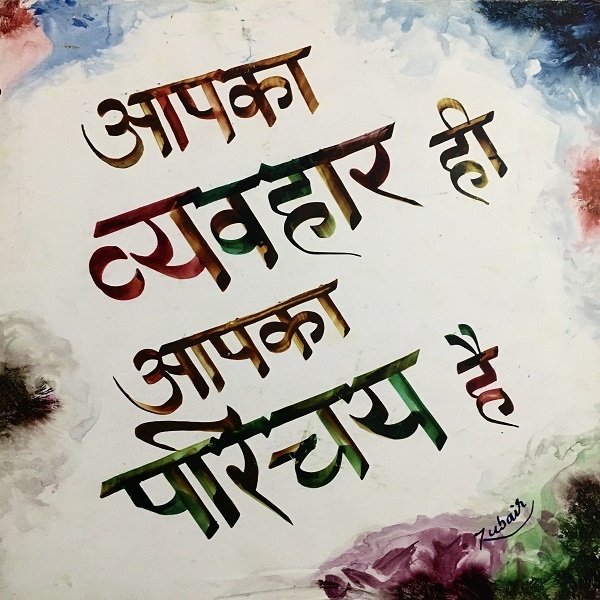 आपका
व्यवहार ही
आपका
परिचय है
Zubair